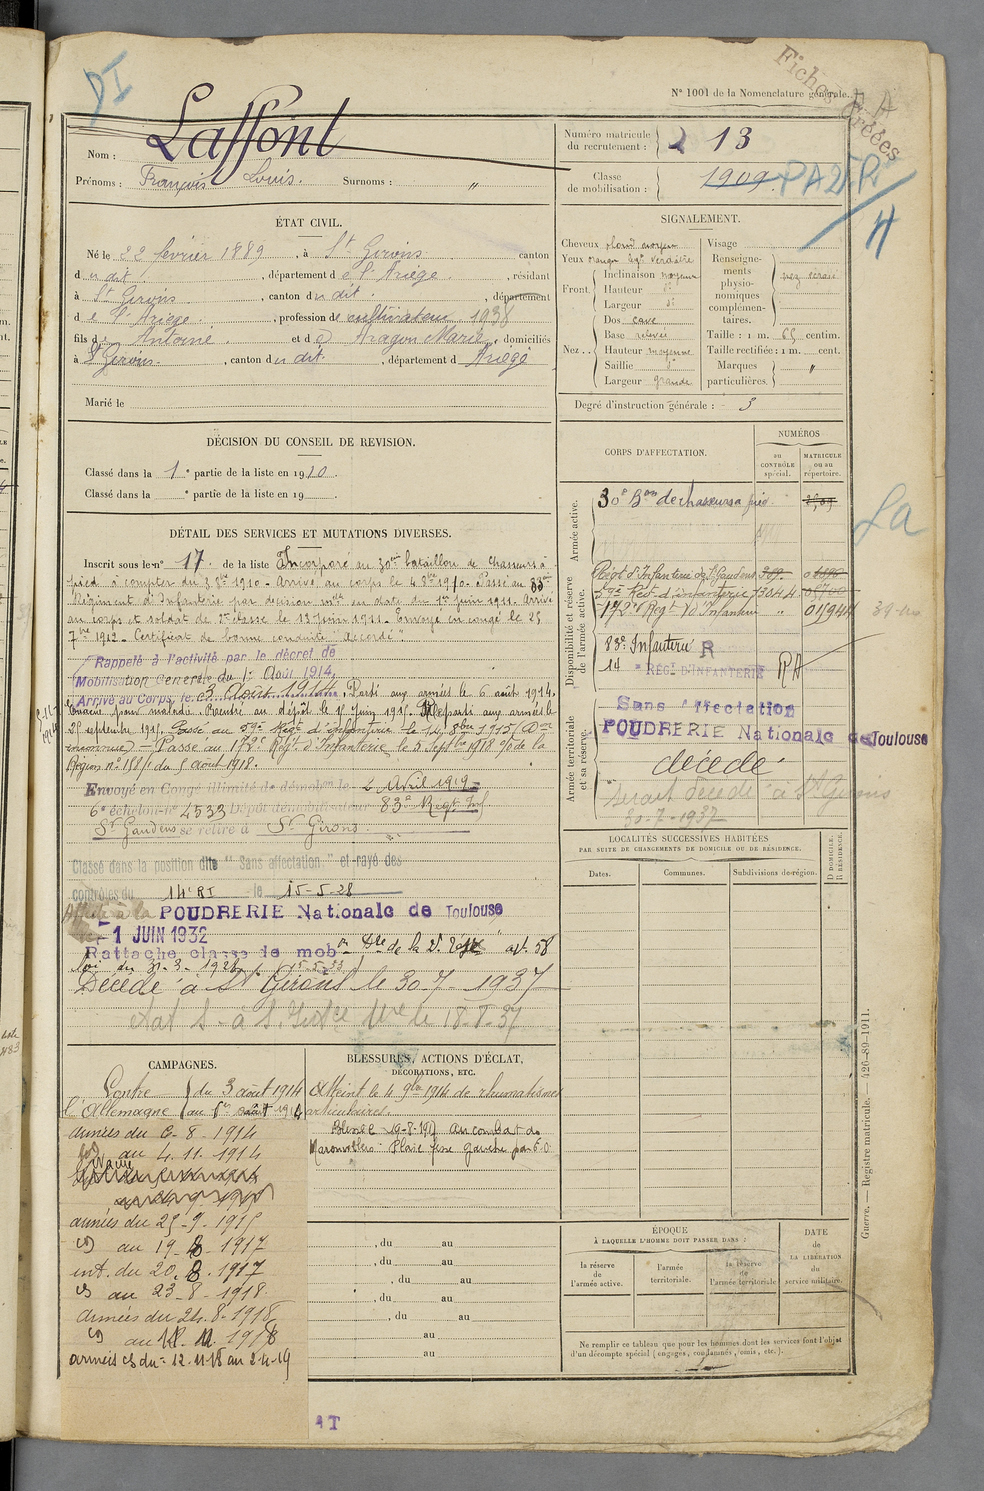 N° 1001 de la Nomenclature générale.
Fiches Créées
Laffont
Nom :
Prénoms : François Louis. Surnoms : "
Numéro matricule du recrutement : 213
Classe de mobilisation : 1909
ÉTAT CIVIL.
Né le 22 février 1889, à St Girons canton
d u dit, département d e l'Ariège, résidant
à St Girons, canton du dit, département
d e l'Ariège, profession de cultivateur 1938
fils d' Antoine et d e Aragon Marie, domiciliés
à St Girons, canton du dit, département d Ariège
Marié le
SIGNALEMENT.
Cheveux blond moyen
Yeux
Front. Inclinaison moyenne
Hauteur do
Largeur do
Nez. Dos cave
Base relevée
Hauteur moyenne
Saillie do
Largeur grande
Visage
Renseignements physionomiques complémentaires.
Taille : 1 m. 65 centim.
Taille rectifiée : 1 m. cent.
Marques particulières. "
Degré d'instruction générale : 3
DÉCISION DU CONSEIL DE REVISION.
Classé dans la 1e partie de la liste en 1910.
Classé dans la e partie de la liste en 19
DÉTAIL DES SERVICES ET MUTATIONS DIVERSES.
Inscrit sous le n° 17 de la liste Incorporé au 30me bataillon de Chasseurs à
pied à compter du 3 8bre 1910. Arrivé au corps le 4 8bre 1910. Passé au 83me
Régiment d'Infanterie par décision mlle en date du 1er juin 1911. Arrivé
au corps et soldat de 2e classe le 13 juin 1911. Envoyé en congé le 25
7bre 1912. Certificat de bonne conduite "Accordé"
Rappelé à l'activité par le décret de
Mobilisation Générale du 1er Août 1914,
Arrivé au Corps, le 3 Août 1914. Parti aux armées le 6 août 1914.
Evacué pour maladie. Rentré au dépôt le 1er Juin 1915. Reparti aux armées le
25 septembre 1915. Passé au 59e Régt d'infanterie le 14 8bre 1915 (Don
ministre) - Passé au 172e Régt d'Infanterie le 5 Septbre 1918 % de la
Région n° 158/1 du 5 août 1918.
Envoyé en Congé illimité de démobon le 2 Avril 1919
6e échelon n° 4533 Dépôt démobilisateur 83e Regt Inf
St Gaudens se retire à St Girons.
Classé dans la position dite "Sans affectation," et rayé des
contrôles du 14e RI le 15-5-28
Affecté à la POUDRERIE Nationale de Toulouse
-1 JUIN 1932
Rattaché classe de mobon art. 58
loi du 31-3-1928
Décédé à St Girons le 30-7-1937
CORPS D'AFFECTATION.
NUMÉROS
au CONTRÔLE spécial.
MATRICULE ou au répertoire.
Armée active.
30e Bon de chasseurs à pied
Disponibilité et réserve de l'armée active.
Régt d'Infanterie de St Gaudens
59e Reg d'infanterie
172e Regt d'Infanterie " 01944
83e Infanterie R
14 e RÉGt D'INFANTERIE RA
Armée territoriale et sa réserve.
Sans affectation
POUDRERIE Nationale de Toulouse
décédé
serait décédé à St Girons
30-7-1937
LOCALITÉS SUCCESSIVES HABITÉES
PAR SUITE DE CHANGEMENTS DE DOMICILE OU DE RÉSIDENCE.
Dates. Communes. Subdivisions de région. D DOMICILE. R RÉSIDENCE.
CAMPAGNES.
Contre l'Allemagne du 3 août 1914
armées du 6-8-1914
au 4.11.1914
armées du 25-9-1915
au 19-8-1917
int. du 20.8.1917
au 23-8-1918
armées du 24.8-1918
au 11.11.1918
armées du 12-11-18 au 2-4-19
BLESSURES, ACTIONS D'ÉCLAT,
DÉCORATIONS, ETC.
Atteint le 4 9bre 1914 de rhumatismes
articulaires.
Blessé 19-8-1917 au combat de
Maronvillers Plaie fesse gauche par é.o.
, du au
, du au
, du au
, du au
, du au
au
au
ÉPOQUE
À LAQUELLE L'HOMME DOIT PASSER DANS :
la réserve de l'armée active.
l'armée territoriale.
la réserve de l'armée territoriale
DATE de LA LIBÉRATION du service militaire.
Ne remplir ce tableau que pour les hommes dont les services font l'objet
d'un décompte spécial (engagés, condamnés, omis, etc.).
Guerre. — Registre matricule. — 426-89-1911.